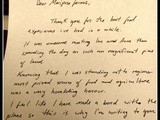 Dear Marpese farms,
Thank you for the best food
experience I've had in a while.
It was awesome meeting the new than
spending the day on such an magnificent piece
of land.
Knowing that I was standing with regions
most proud source of food and agriculture
was a very humbling honour.
I feel like I have made a bond with the
place so this is why I'm writing to you